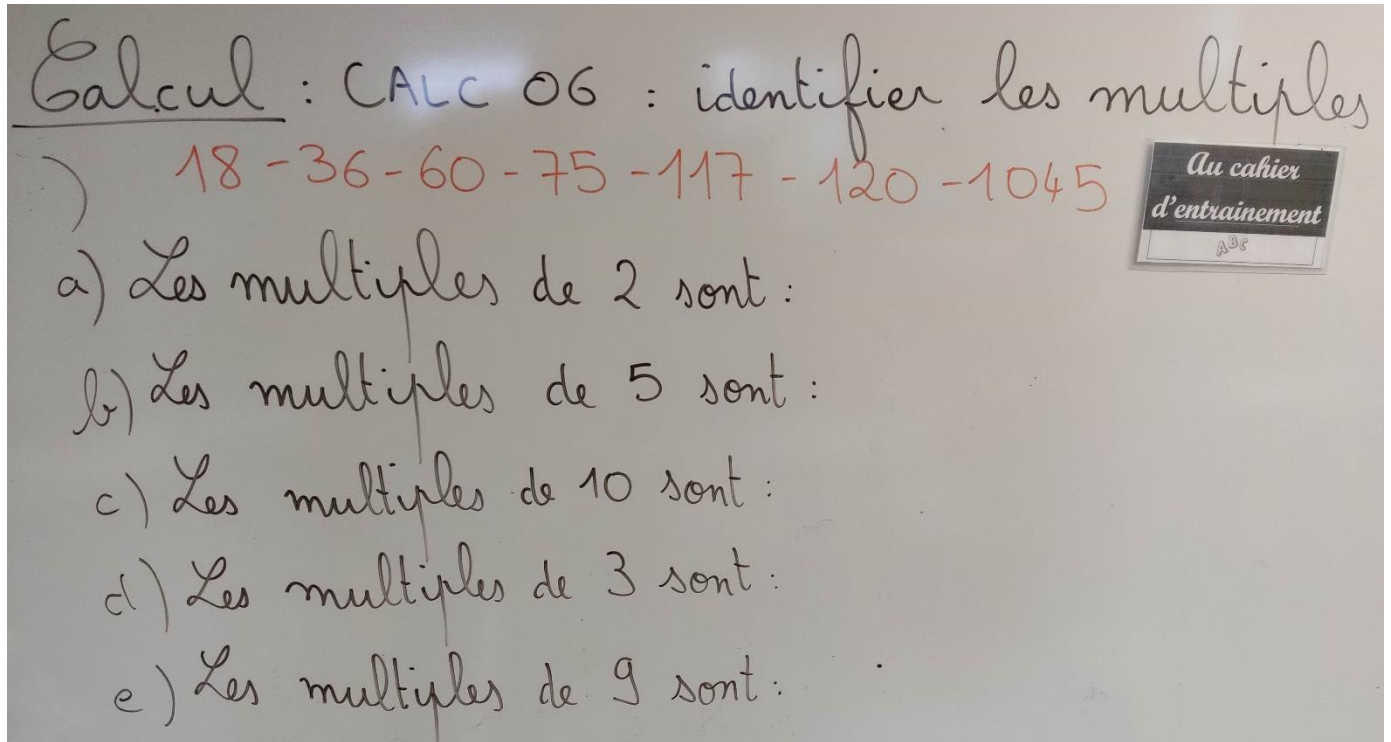 Calcul : CALC 06 : identifier les multiples
) 18 - 36 - 60 - 75 - 117 - 120 - 1045
Au cahier
d'entrainement
ABC
a) Les multiples de 2 sont :
b) Les multiples de 5 sont :
c) Les multiples de 10 sont :
d) Les multiples de 3 sont :
e) Les multiples de 9 sont :